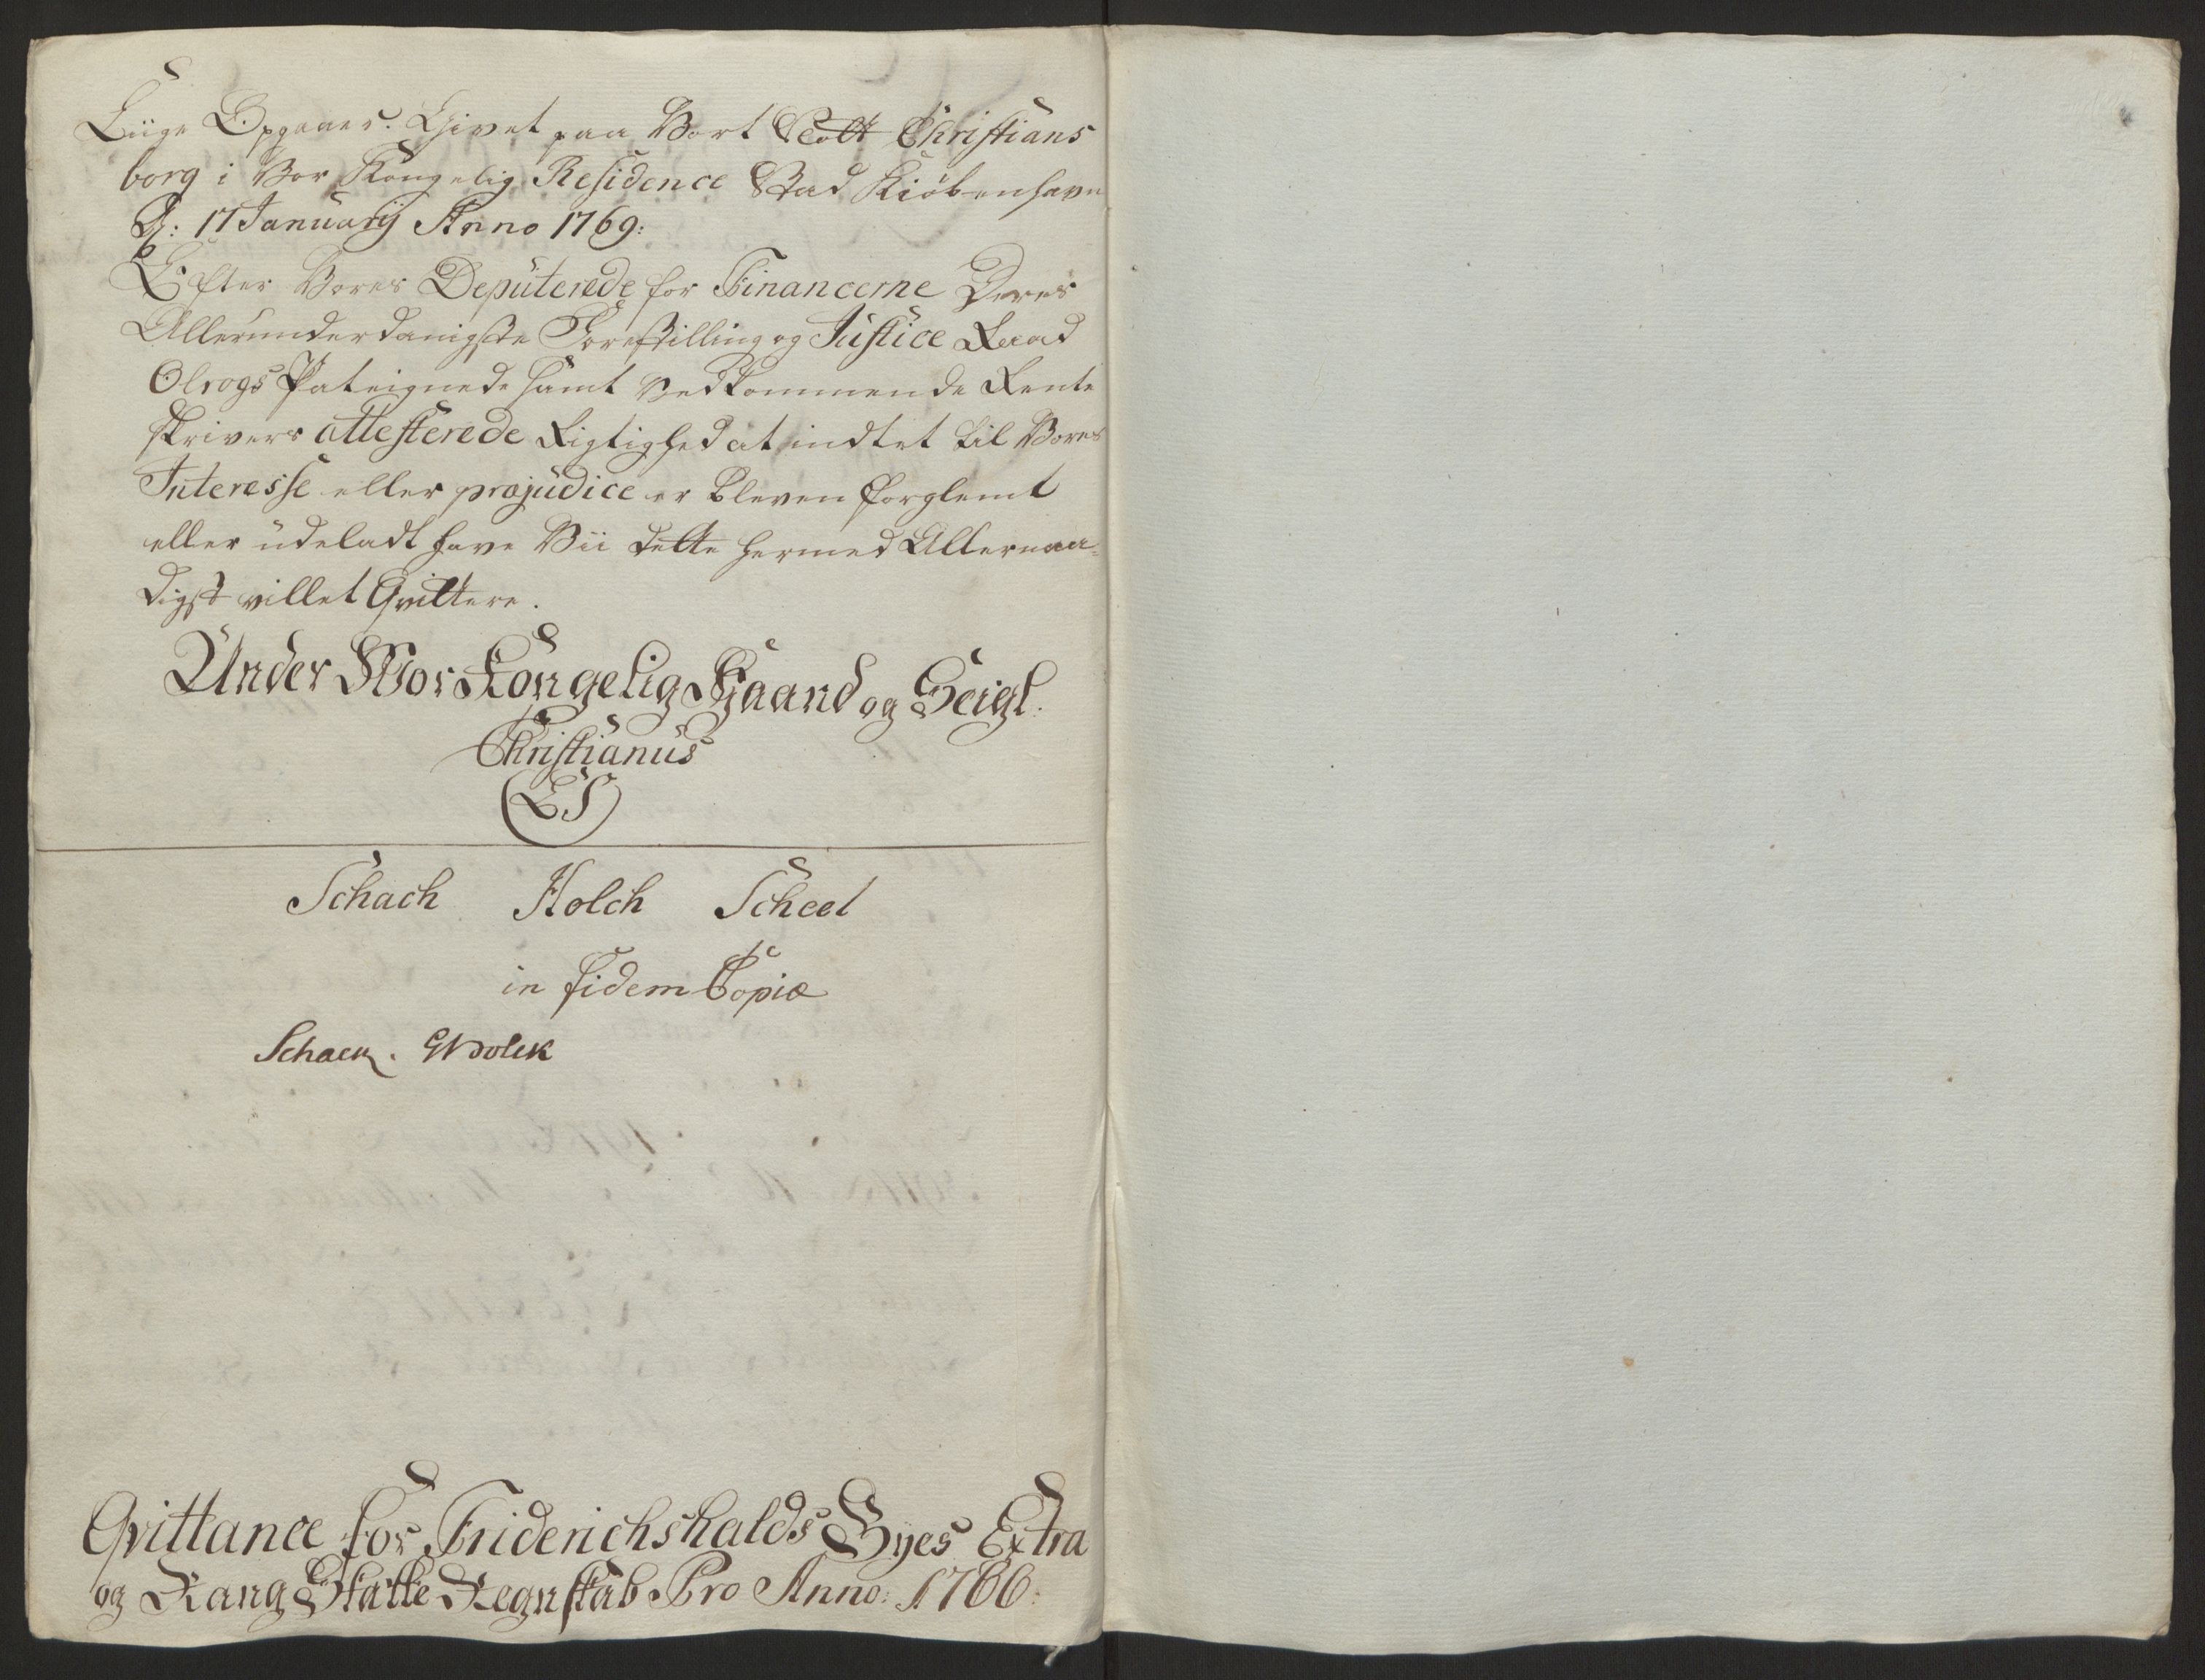 Liige Opgaaer. Givet paa Vort Slott Christians
borg i Vor Kongelig Residence Stad Kiöbenhavn
D: 17 Januarij Anno 1769:
Efter Vores Deputerede for Financerne Deres
Allerunderdanigste Forestilling og Justice Raad
Olrogs Pateignede samt Vedkommende Rente
skrivers attesterede Rigtighed at indtet til Vores
Interesse eller præjudice er bleven forglemt
eller udeladt have Vii dette hermed Allernaa-
digst villet Qvittere.
Under Vor Kongelig Haand og Seigl.
Christianus
(LS)
Schach Holch Scheel
in fidem Copiæ
Schack.
Qvittance for Friderichshalds Byes Extra
og Rang Skatte Regnskab Pro Anno: 1766: